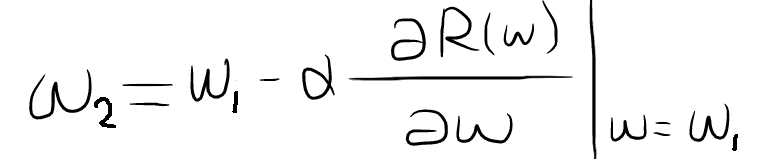 w₂ = w₁ - α ∂R(w)/∂w |w = w₁